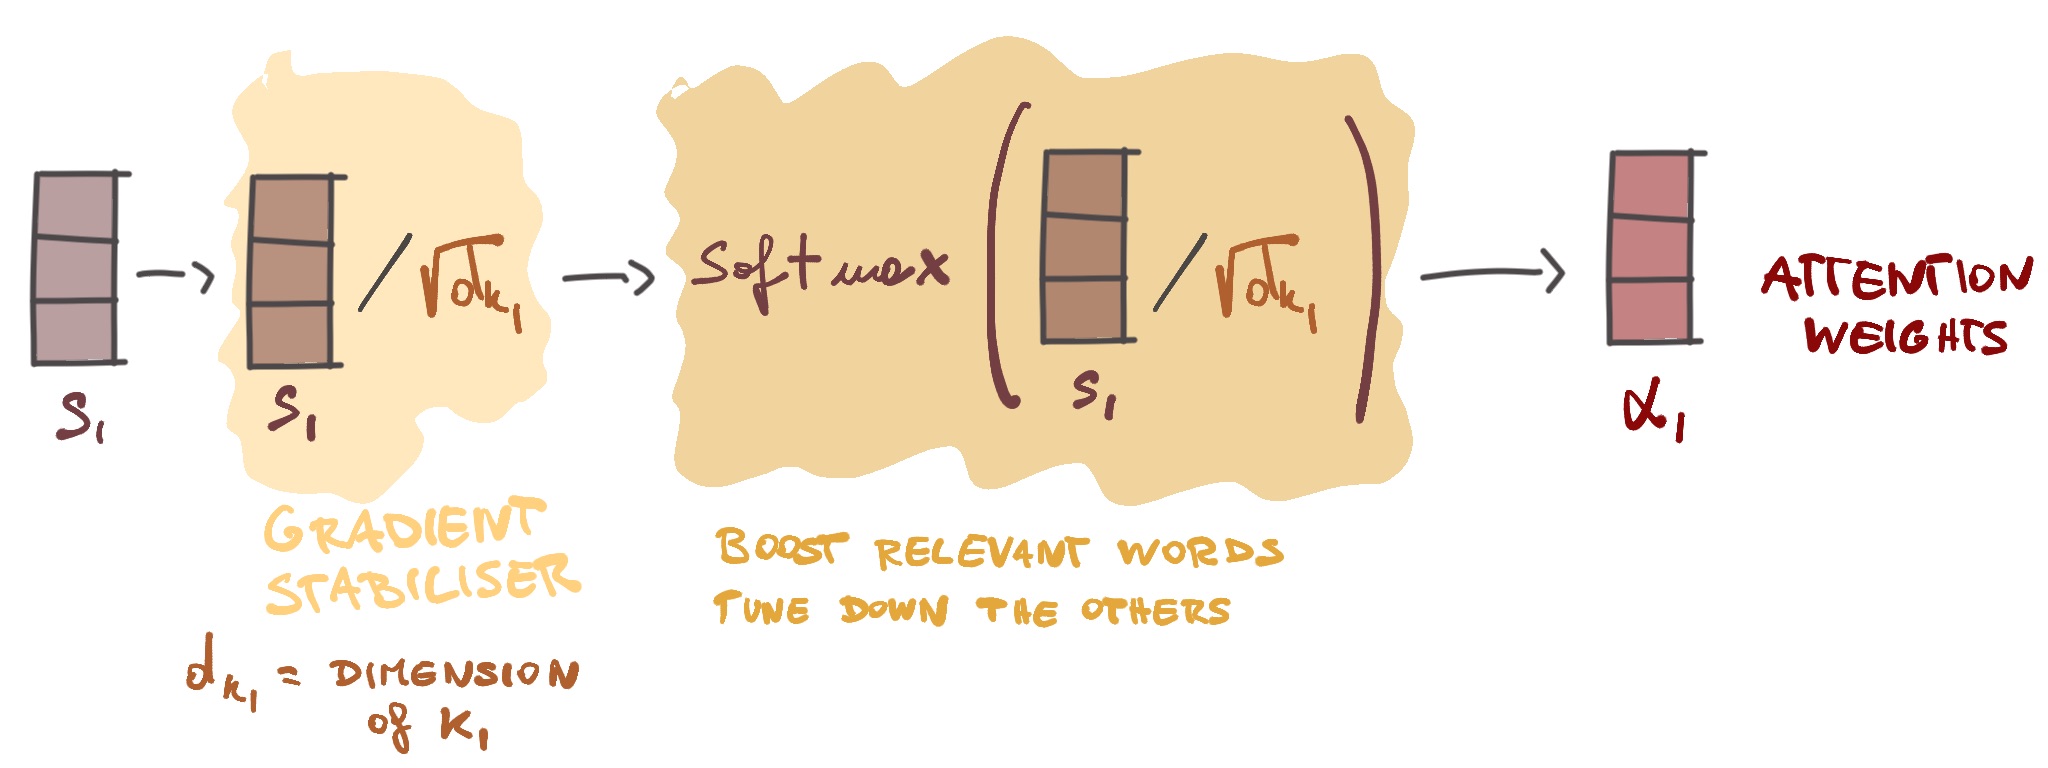 S₁
S₁ / √dₖ₁
Softmax ( S₁ / √dₖ₁ )
α₁
ATTENTION
WEIGHTS
GRADIENT
STABILISER
dₖ₁ = DIMENSION
of K₁
BOOST RELEVANT WORDS
TUNE DOWN THE OTHERS